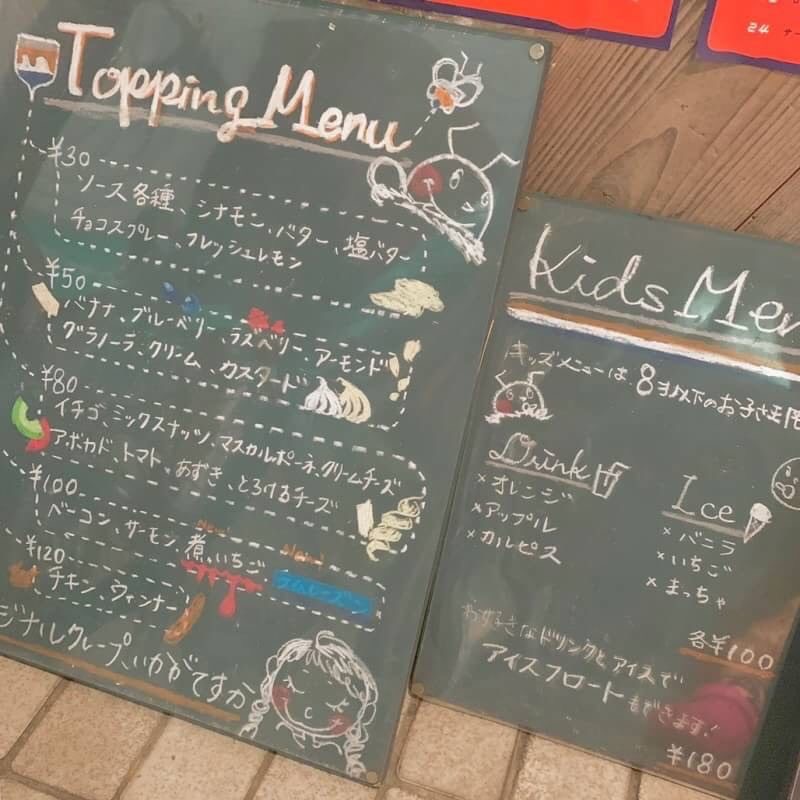 Topping Menu
¥30
ソース各種、シナモン、バター、塩バター
チョコスプレー、フレッシュレモン
¥50
バナナ、ブルーベリー、ラズベリー、アーモンド
グラノーラ、クリーム、カスタード
¥80
イチゴ、ミックスナッツ、マスカルポーネ、クリームチーズ
アボカド、トマト、あずき、とろけるチーズ
¥100
New!
New!
ベーコン、サーモン、煮いちご
ラムレーズン
¥120
チキン、ウィンナー
ジナルクレープ、いかがですか
Kids Men
キッズメニューは、8才以下のお子さま用
Drink
×オレンジ
×アップル
×カルピス
Ice
×バニラ
×いちご
×まっちゃ
各¥100
お好きなドリンクとアイスで
アイスフロートもできます!
¥180
24